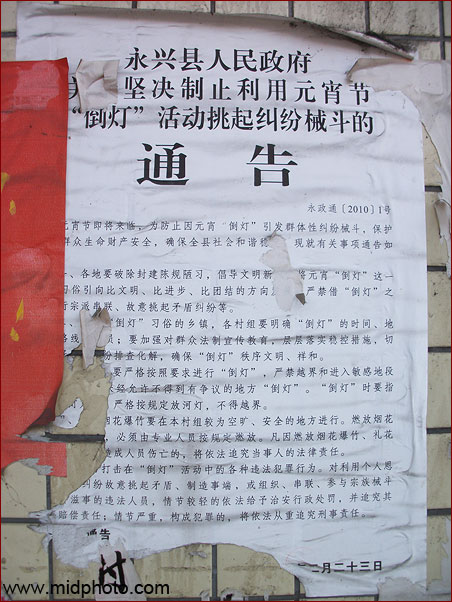 永兴县人民政府
坚决制止利用元宵节
“倒灯”活动挑起纠纷械斗的
通 告
永政通〔2010〕1号
元宵节即将来临，为防止因元宵“倒灯”引发群体性纠纷械斗，保护
群众生命财产安全，确保全县社会和谐稳 现就有关事项通告如
、各地要破除封建陈规陋习，倡导文明新 将元宵“倒灯”这一
习俗引向比文明、比进步、比团结的方向发 严禁借“倒灯”之
行宗派串联、故意挑起矛盾纠纷等。
“倒灯”习俗的乡镇，各村组要明确“倒灯”的时间、地
路线 员；要加强对群众法制宣传教育，层层落实稳控措施，切
纷排查化解，确保“倒灯”秩序文明、祥和。
要严格按照要求进行“倒灯”，严禁越界和进入敏感地段
经允许不得到有争议的地方“倒灯”。“倒灯”时要指
严格按规定放河灯，不得越界。
烟花爆竹要在本村组较为空旷、安全的地方进行。燃放烟花
，必须由专业人员按规定燃放。凡因燃放烟花爆竹、礼花
造成人员伤亡的，将依法追究当事人的法律责任。
打击在“倒灯”活动中的各种违法犯罪行为。对利用个人恩
纠纷故意挑起矛盾、制造事端，或组织、串联、参与宗族械斗
滋事的违法人员，情节较轻的依法给予治安行政处罚，并追究其
赔偿责任；情节严重，构成犯罪的，将依法从重追究刑事责任。
通告
二月二十三日
www.midphoto.com